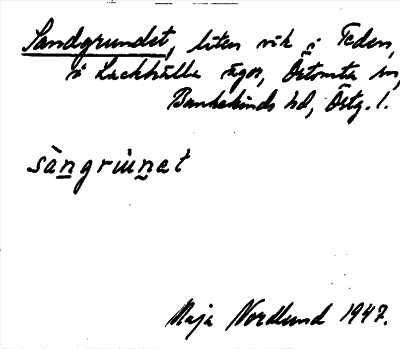 Sandgrundet, liten vik i Teden,
i Lackhälla ägor, Östomta sn,
Bankekinds hd, Östg. l.
sàngrùnet
Maja Nordlund 1947.